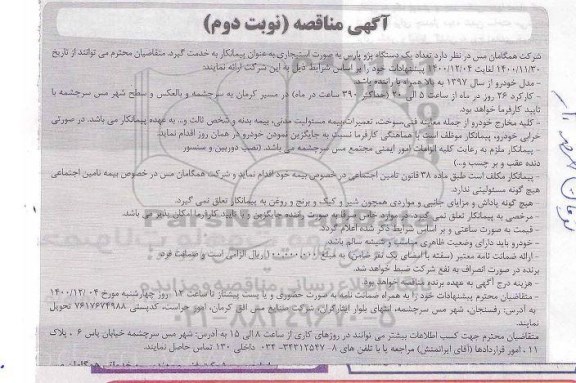 آگهی مناقصه (نوبت دوم)
شرکت همگامان مس در نظر دارد تعداد یک دستگاه پژو پارس به صورت استیجاری به عنوان پیمانکار به خدمت گیرد. متقاضیان محترم می توانند از تاریخ
۱۴۰۰/۱۱/۳۰ لغایت ۱۴۰۰/۱۲/۰۴ پیشنهادات خود را بر اساس شرایط ذیل به این شرکت ارائه نمایند:
- مدل خودرو از سال ۱۳۹۷ به بالا همراه با راننده باشد.
- کارکرد ۲۶ روز در ماه از ساعت ۵ الی ۲۰ (حداکثر ۳۹۰ ساعت در ماه) در مسیر کرمان به سرچشمه و بالعکس و سطح شهر مس سرچشمه با
تایید کارفرما خواهد بود.
- کلیه مخارج خودرو از جمله معاینه فنی، سوخت، تعمیرات، بیمه مسئولیت مدنی، بیمه بدنه و شخص ثالث و... به عهده پیمانکار می باشد. در صورتی
خرابی خودرو، پیمانکار موظف است با هماهنگی کارفرما نسبت به جایگزین نمودن خودرو در همان روز اقدام نماید.
- پیمانکار ملزم به رعایت کلیه الزامات امور ایمنی مجتمع مس سرچشمه می باشد. (نصب دوربین و سنسور
دنده عقب و بر چسب و...)
- پیمانکار مکلف است طبق ماده ۳۸ قانون تامین اجتماعی در خصوص بیمه خود اقدام نماید و شرکت همگامان مس در خصوص بیمه تامین اجتماعی
هیچ گونه مسئولیتی ندارد.
هیچ گونه پاداش و مزایای جانبی و مواردی همچون شیر و کیک و برنج و روغن به پیمانکار تعلق نمی گیرد.
- مرخصی به پیمانکار تعلق نمی گیرد. در موارد خاص صرفا به صورت راننده جایگزین و با تایید کارفرما امکان پذیر می باشد.
- قیمت به صورت ساعتی و بر اساس شرایط ذکر شده اعلام گردد.
- خودرو باید دارای وضعیت ظاهری مناسب و شیشه سالم باشد.
- ارائه ضمانت نامه معتبر (سفته با امضای یک نفر ضامن) به مبلغ ریال الزامی است و ضمانت فرد
برنده در صورت انصراف به نفع شرکت ضبط خواهد شد.
- هزینه درج آگهی به عهده برنده مناقصه خواهد بود.
- متقاضیان محترم پیشنهادات خود را به همراه ضمانت نامه به صورت حضوری و یا پست پیشتاز تا ساعت ۱۳ روز چهارشنبه مورخ ۱۴۰۰/۱۲/۰۴
به آدرس: رفسنجان، شهر مس سرچشمه، انتهای بلوار ایثارگران، شرکت صنایع مس افق کرمان، امور حراست، کدپستی ۷۶۱۷۶۷۴۹۸۸ تحویل
نمایند.
متقاضیان محترم جهت کسب اطلاعات بیشتر می توانند در روزهای کاری از ساعت ۸ الی ۱۵ به آدرس: شهر مس سرچشمه خیابان یاس ۶ ، پلاک
۲۱ ، امور قراردادها (آقای ایرانمنش) مراجعه یا با تلفن های ۸-۳۴۳۱۲۵۴۷-۰۳۴ داخلی ۱۳۰ تماس حاصل نمایند.